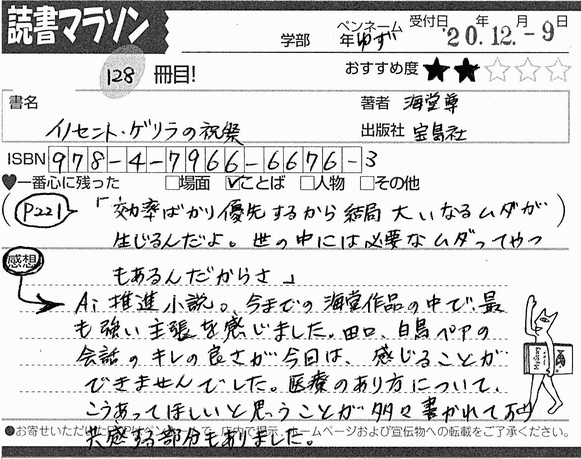 読書マラソン
学部 年 ペンネーム ゆず 受付日 '20.年12.月-9日
128 冊目!
おすすめ度 ★★☆☆☆
書名 イノセント・ゲリラの祝祭
著者 海堂尊
出版社 宝島社
ISBN 978-4-7966-6676-3
♥一番心に残った □場面 ☑ことば □人物 □その他
(P221)「効率ばかり優先するから結局大いなるムダが
生じるんだよ。世の中には必要なムダってやつ
もあるんだからさ」
感想
Ai推進小説。今までの海堂作品の中で、最
も強い主張を感じました。田口、白鳥ペアの
会話のキレの良さが今回は、感じることが
できませんでした。医療のあり方について、
こうあってほしいと思うことが多々書かれており
共感する部分もありました。